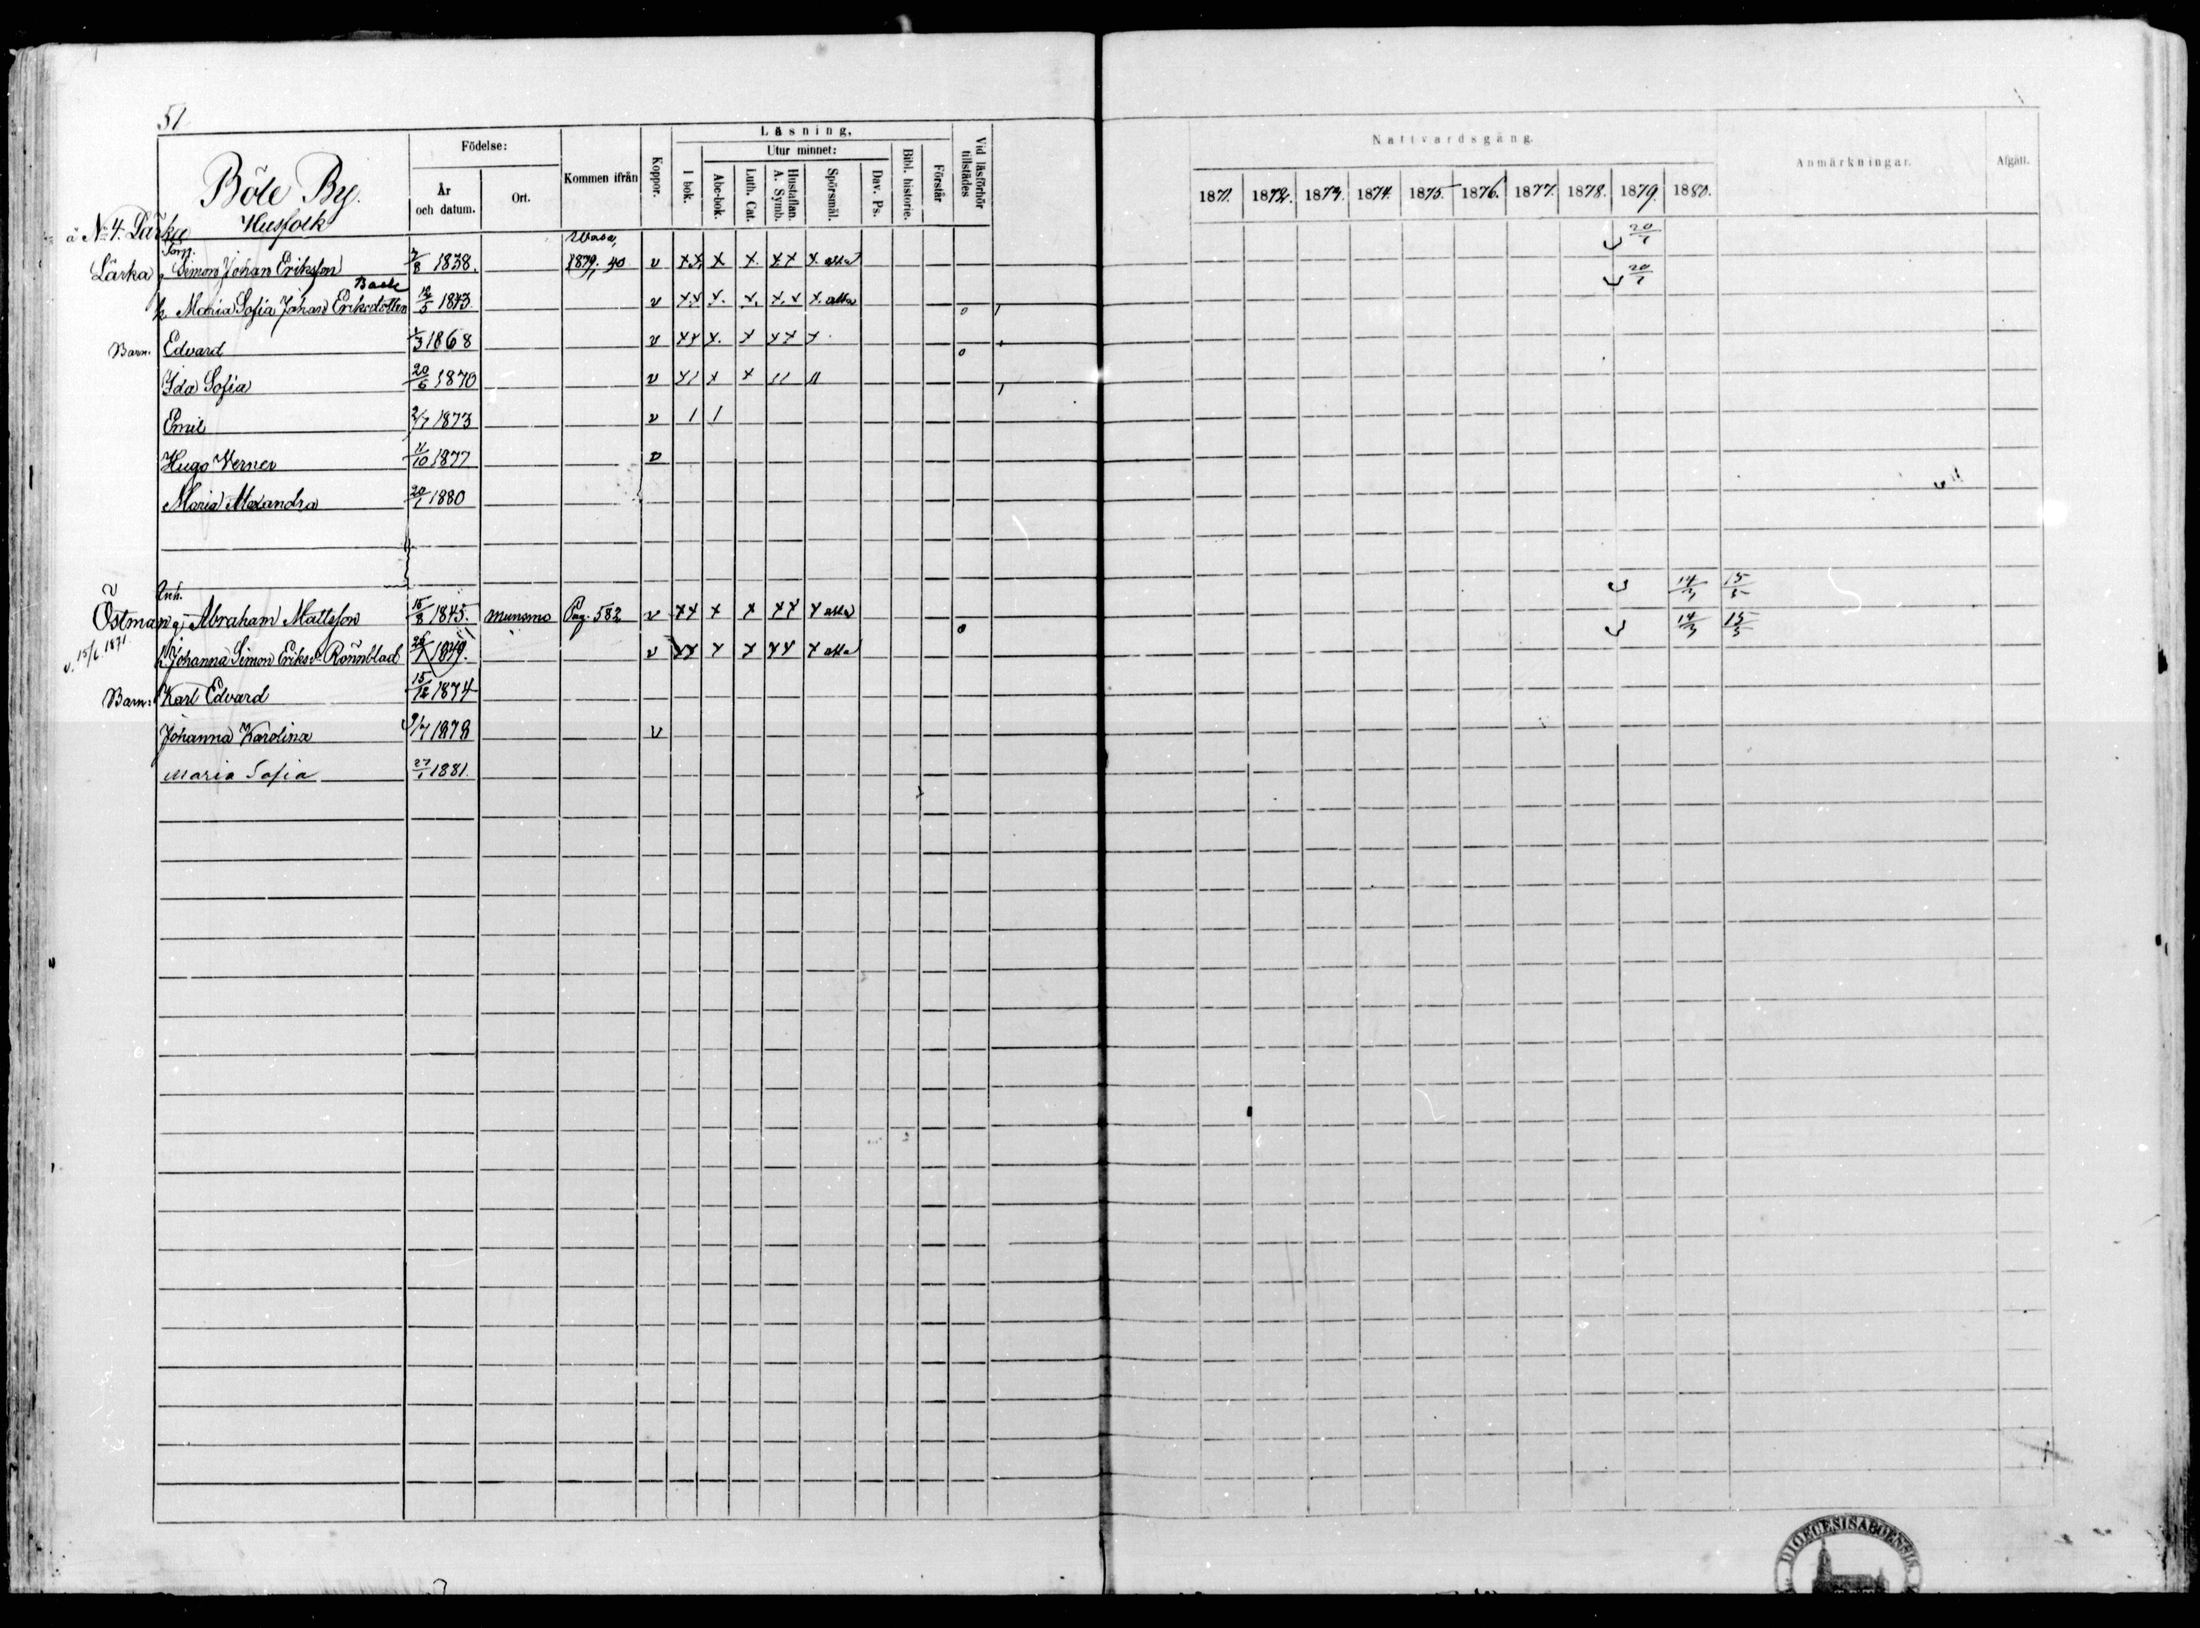 51
Läsning,
Födelse:
Utur minnet:
År och datum.
Ort.
Kommen ifrån
Koppor.
I bok.
Abc-bok.
Luth. Cat.
Hustaflan. A. Symb.
Spörsmål.
Dav. Ps.
Bibl. historie.
Förstår
Vid läsförhör tillstädes
Nattvardsgång.
Anmärkningar.
Afgått.
1871. 1872. 1873. 1874. 1875. 1876. 1877. 1878. 1879. 1880.
Böle By.
Husfolk
å No 4. Lärka
Wasa,
Lärka Simon Johan Eriksson 7/8 1838. 1879. 40 v xx x x. xx x. alla 20/7
Back
h. Maria Sofia Johan Eriksdotter 12/5 1843. v xx x. x. x.x x. alla 20/7
Barn. Edvard 1/3 1868 v xx x. x xx x
Ida Sofia 20/6 1870 v x/ x x // //
Emil 2/7 1873 v / /
Hugo Verner 11/10 1877 v
Maria Alexandra 20/1 1880
Inh.
Östman g. Abraham Mattsson 15/8 1845. Munsmo Pag. 582 v xx x x xx x alla 14/3 15/5
v. 15/6. 1871. h. Johanna Simon Eriksd. Rönnblad 1849. v xx x x xx x alla 14/3 15/5
Barn: Karl Edvard 15/12 1874
Johanna Karolina 9/7 1878 v
Maria Sofia 27/1 1881.
DIOECESIS ABOENSIS